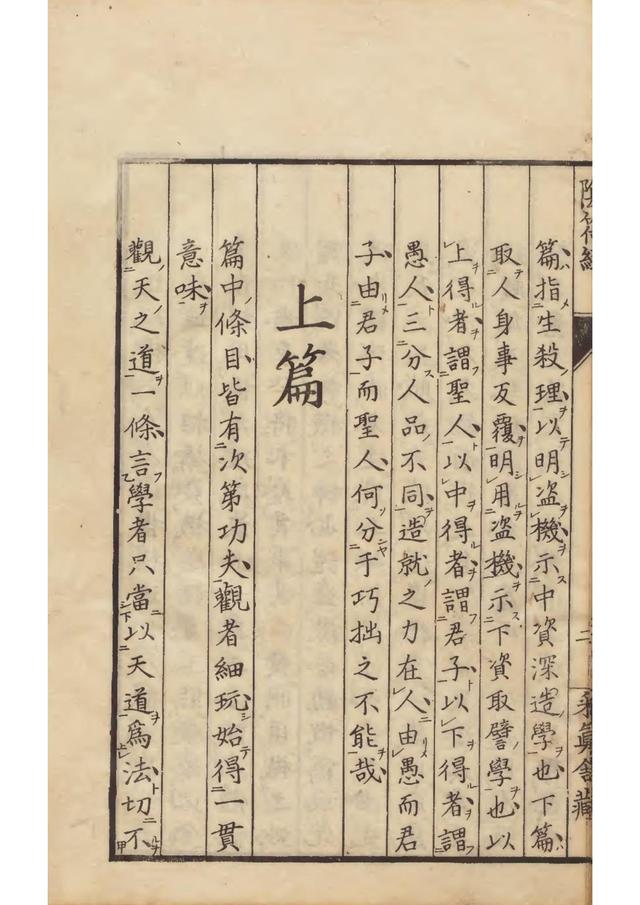 陰符經
二
篇指生殺理以明盗機示中資深造學也下篇
取人身事反覆明用盗機示下資取譬學也以
上得者謂聖人以中得者謂君子以下得者謂
愚人三分人品不同造就之力在人由愚而君
子由君子而聖人何分于巧拙之不能哉
上篇
篇中條目皆有次第功夫觀者細玩始得一貫
意味
觀天之道一條言學者只當以天道爲法切不